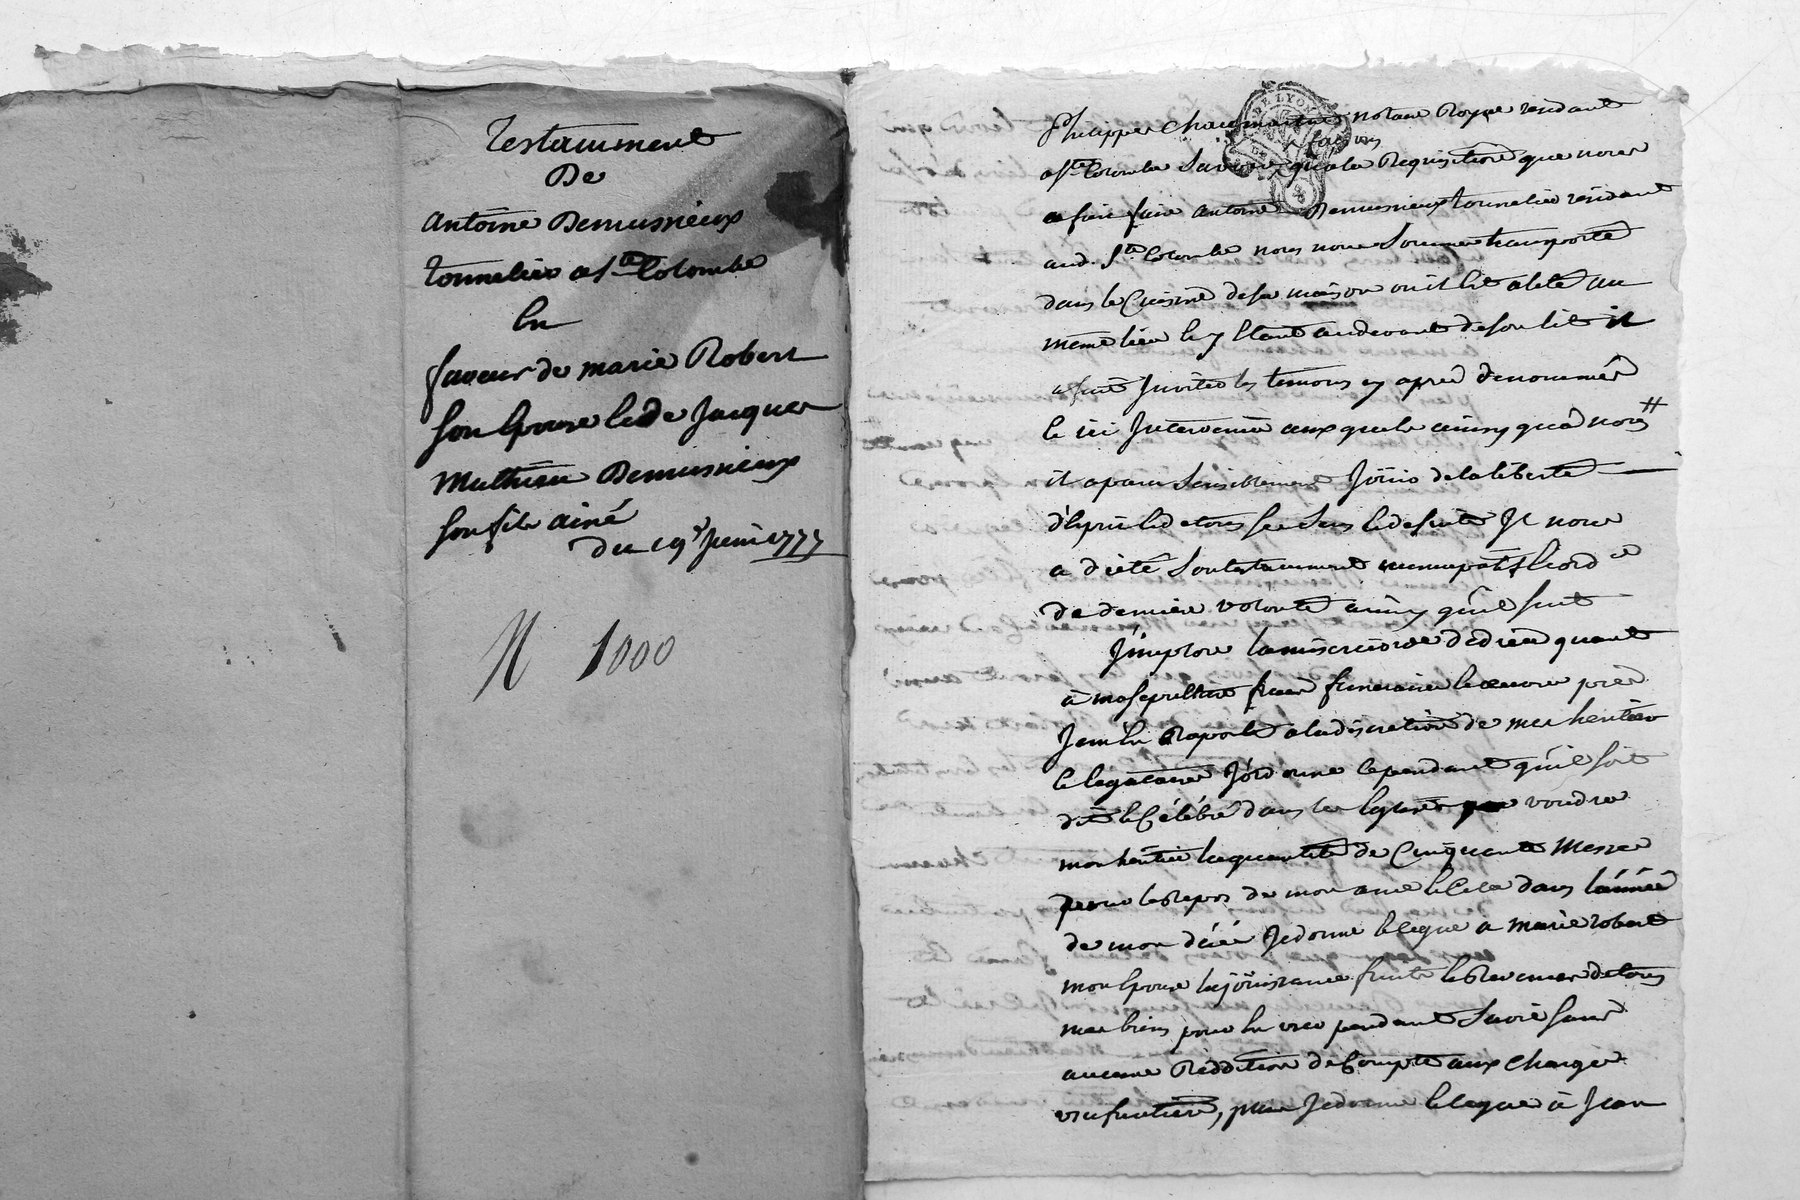 Testamment
De
antoine Demusnieux
tonnelier a ste Colombe
En
faveur de marie Robert
son Epouse et de Jacques
Mathieu Demusnieux
son fils ainé
du 19e juin 1777
N 1000
DE LYON
Philippe Chaumartin notaire Royal residant
faisons
a ste Colombe Savoir qu'a la Requisition que nous
a fait faire antoine Demusnieux tonnelier residant
aud. Ste Colombe nous nous sommes transporté
dans la Cuisine de sa maison ou il est alité au
même lieu et y Etant au devant de son lit il
a fait Inviter les temoins cy après denommés
et ici Intervenir auxquels ainsy qu'à nous #
il a paru sensiblement Joüir de la liberté
d'Esprit et de tous ses sens et de suite Il nous
a dicté son testamment nuncupatif et ord.ce
de derniere volonté ainsy qu'il suit
J'implore la misericorde de dieu quant
à ma sepulture frais funeraires et œuvres pies
Je m'En Raporte a la discretion de mes heritiers
et legataires J'ordonne cependant qu'il soit
dit et Célébré dans les Eglises que voudra
mon héritier la quantité de Cinquante Messes
pour le Repos de mon ame et Cela dans l'année
de mon décés Je donne et legue a marie Robert
mon Epouse la joüissance fruits et Revenus de tous
mes biens pour En user pendant sa vie sans
aucune Réddition de Compte aux charges
usufruitieres, plus Je donne et legue à Jean